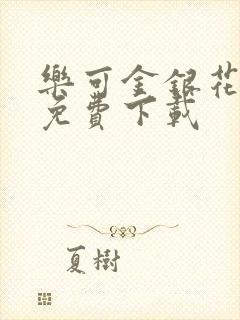 樂可金銀花
免費下載
夏樹